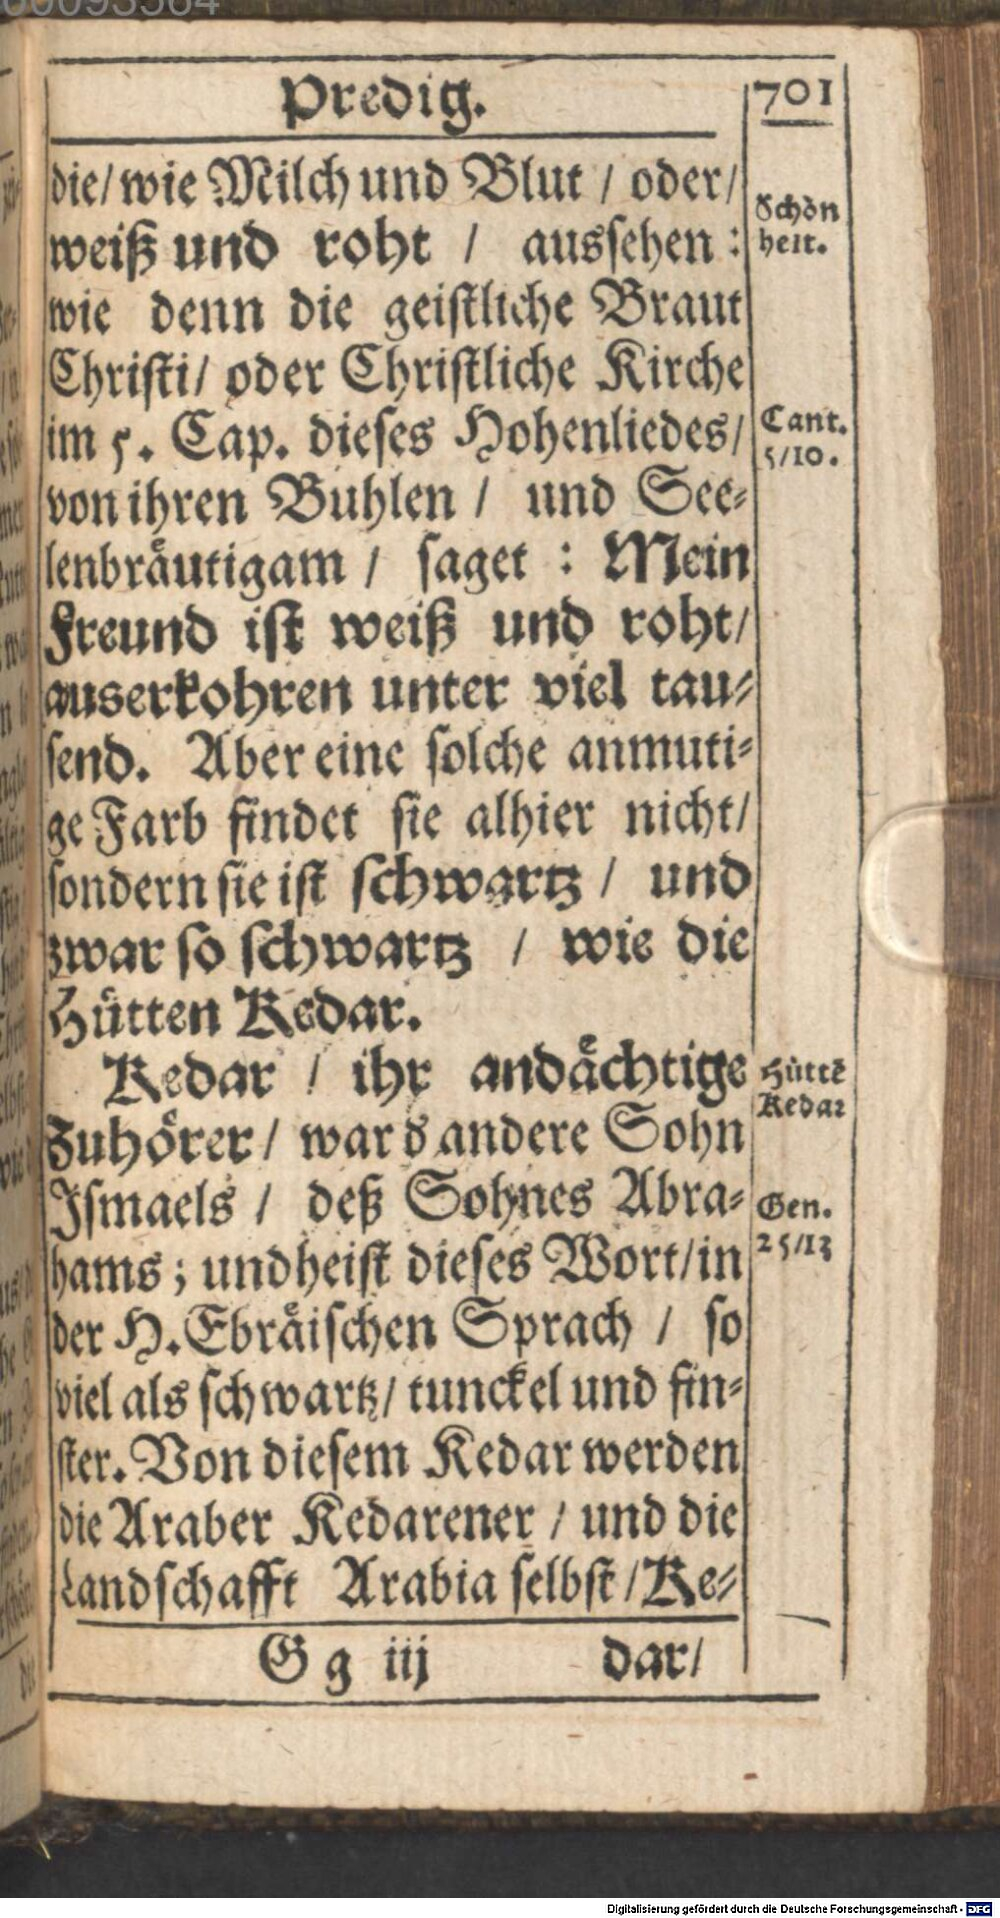 Predig.
701
die/ wie Milch und Blut / oder/
weiß und roht / aussehen :
wie denn die geistliche Braut
Christi/ oder Christliche Kirche
im 5. Cap. dieses Hohenliedes/
von ihren Buhlen / und See-
lenbräutigam / saget : Mein
Freund ist weiß und roht/
auserkohren unter viel tau-
send. Aber eine solche anmuti-
ge Farb findet sie alhier nicht/
sondern sie ist schwartz / und
zwar so schwartz / wie die
Hütten Kedar.
Kedar / ihr andächtige
Zuhörer/ war d andere Sohn
Ismaels / deß Sohnes Abra-
hams; und heist dieses Wort/in
der H. Ebräischen Sprach / so
viel als schwartz/ tunckel und fin-
ster. Von diesem Kedar werden
die Araber Kedarener / und die
Landschafft Arabia selbst / Ke-
G g iij dar/
Schön
heit.
Cant.
5/10.
Hüttē
Kedar
Gen.
25/13
Digitalisierung gefördert durch die Deutsche Forschungsgemeinschaft - DFG